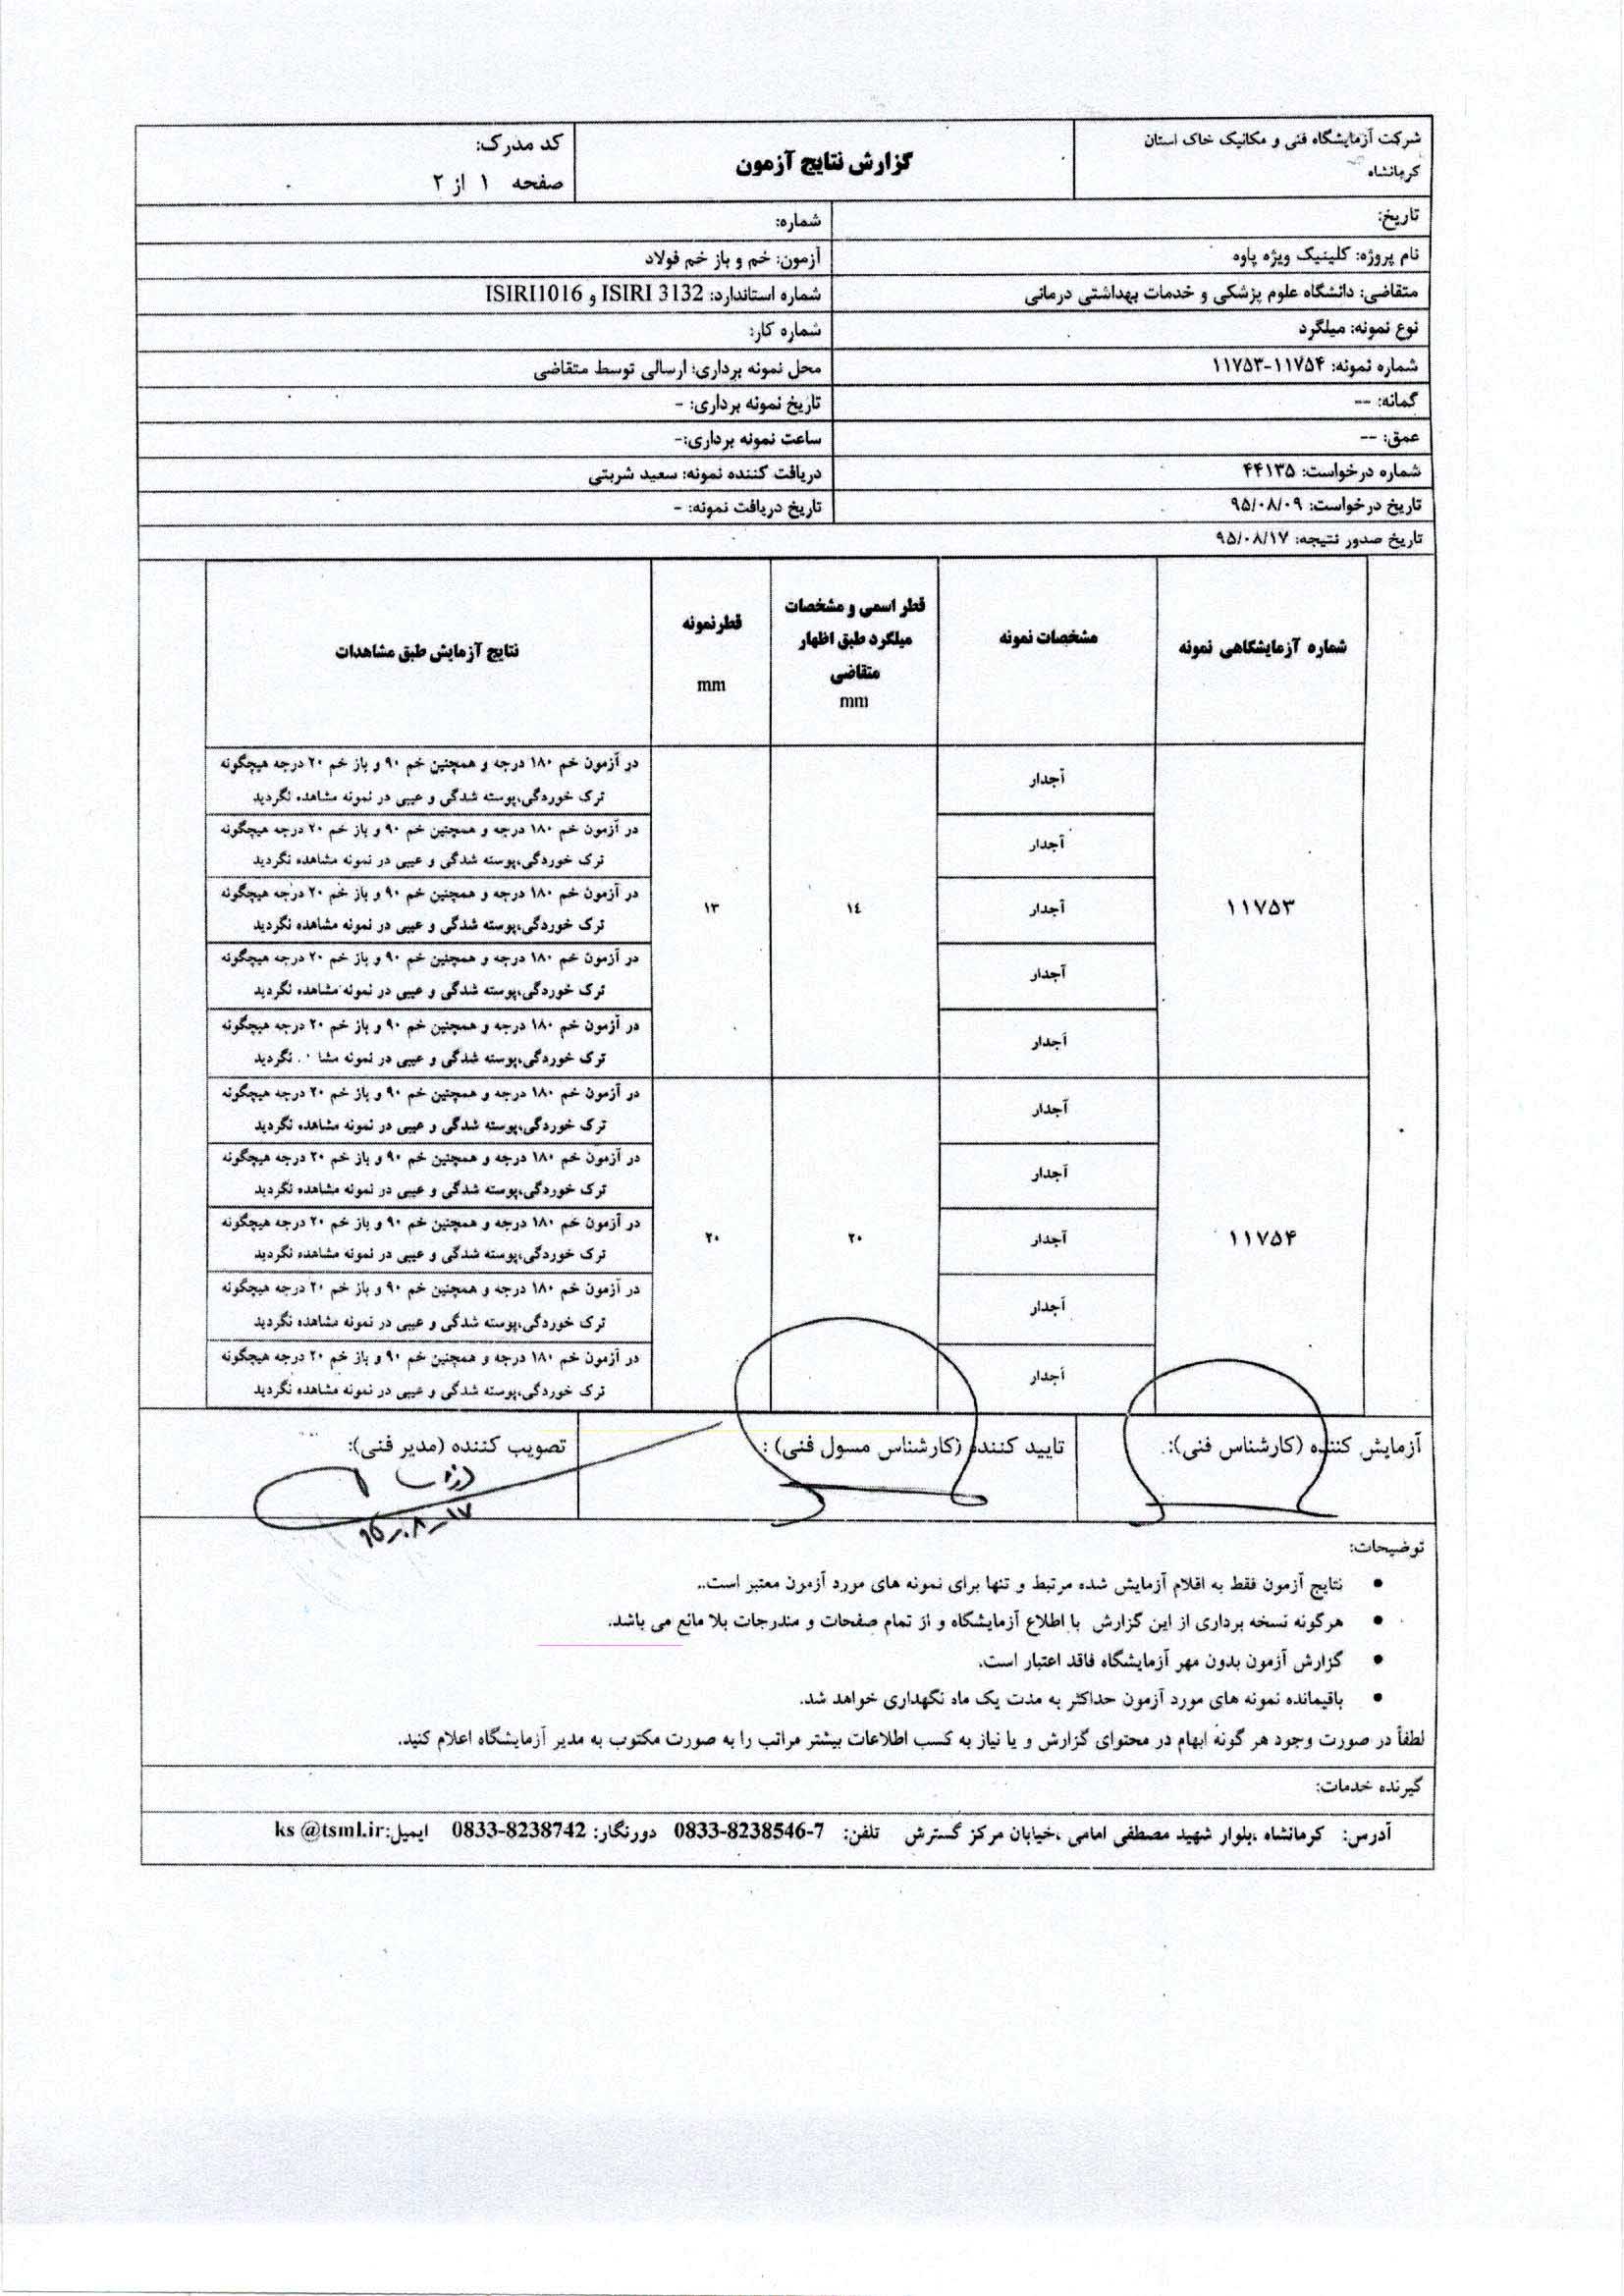 شرکت آزمایشگاه فنی و مکانیک خاک استان
کرمانشاه
گزارش نتایج آزمون
کد مدرک:
صفحه ۱ از ۲
تاریخ:
شماره:
نام پروژه: کلینیک ویژه پاوه
آزمون: خم و باز خم فولاد
متقاضی: دانشگاه علوم پزشکی و خدمات بهداشتی درمانی
شماره استاندارد: ISIRI 3132 و ISIRI1016
نوع نمونه: میلگرد
شماره کار:
شماره نمونه: ۱۱۷۵۴-۱۱۷۵۳
محل نمونه برداری: ارسالی توسط متقاضی
گمانه: --
تاریخ نمونه برداری: -
عمق: --
ساعت نمونه برداری:-
شماره درخواست: ۴۴۱۳۵
دریافت کننده نمونه: سعید شربتی
تاریخ درخواست: ۹۵/۰۸/۰۹
تاریخ دریافت نمونه: -
تاریخ صدور نتیجه: ۹۵/۰۸/۱۷
شماره آزمایشگاهی نمونه
مشخصات نمونه
قطر اسمی و مشخصات
میلگرد طبق اظهار
متقاضی
mm
قطرنمونه
mm
نتایج آزمایش طبق مشاهدات
۱۱۷۵۳
۱٤
۱۳
آجدار
در آزمون خم ۱۸۰ درجه و همچنین خم ۹۰ و باز خم ۲۰ درجه هیچگونه
ترک خوردگی،پوسته شدگی و عیبی در نمونه مشاهده نگردید
آجدار
در آزمون خم ۱۸۰ درجه و همچنین خم ۹۰ و باز خم ۲۰ درجه هیچگونه
ترک خوردگی،پوسته شدگی و عیبی در نمونه مشاهده نگردید
آجدار
در آزمون خم ۱۸۰ درجه و همچنین خم ۹۰ و باز خم ۲۰ درجه هیچگونه
ترک خوردگی،پوسته شدگی و عیبی در نمونه مشاهده نگردید
آجدار
در آزمون خم ۱۸۰ درجه و همچنین خم ۹۰ و باز خم ۲۰ درجه هیچگونه
ترک خوردگی،پوسته شدگی و عیبی در نمونه مشاهده نگردید
آجدار
در آزمون خم ۱۸۰ درجه و همچنین خم ۹۰ و باز خم ۲۰ درجه هیچگونه
ترک خوردگی،پوسته شدگی و عیبی در نمونه نگردید
۱۱۷۵۴
۲۰
۲۰
آجدار
در آزمون خم ۱۸۰ درجه و همچنین خم ۹۰ و باز خم ۲۰ درجه هیچگونه
ترک خوردگی،پوسته شدگی و عیبی در نمونه مشاهده نگردید
آجدار
در آزمون خم ۱۸۰ درجه و همچنین خم ۹۰ و باز خم ۲۰ درجه هیچگونه
ترک خوردگی،پوسته شدگی و عیبی در نمونه مشاهده نگردید
آجدار
در آزمون خم ۱۸۰ درجه و همچنین خم ۹۰ و باز خم ۲۰ درجه هیچگونه
ترک خوردگی،پوسته شدگی و عیبی در نمونه مشاهده نگردید
آجدار
در آزمون خم ۱۸۰ درجه و همچنین خم ۹۰ و باز خم ۲۰ درجه هیچگونه
ترک خوردگی،پوسته شدگی و عیبی در نمونه مشاهده نگردید
آجدار
در آزمون خم ۱۸۰ درجه و همچنین خم ۹۰ و باز خم ۲۰ درجه هیچگونه
ترک خوردگی،پوسته شدگی و عیبی در نمونه مشاهده نگردید
آزمایش کننده (کارشناس فنی):
تایید کننده (کارشناس مسول فنی) :
تصویب کننده (مدیر فنی):
۹۵-۰۸-۱۷
توضیحات:
• نتایج آزمون فقط به اقلام آزمایش شده مرتبط و تنها برای نمونه های مورد آزمون معتبر است..
• هرگونه نسخه برداری از این گزارش با اطلاع آزمایشگاه و از تمام صفحات و مندرجات بلا مانع می باشد.
• گزارش آزمون بدون مهر آزمایشگاه فاقد اعتبار است.
• باقیمانده نمونه های مورد آزمون حداکثر به مدت یک ماه نگهداری خواهد شد.
لطفاً در صورت وجود هر گونه ابهام در محتوای گزارش و یا نیاز به کسب اطلاعات بیشتر مراتب را به صورت مکتوب به مدیر آزمایشگاه اعلام کنید.
گیرنده خدمات:
آدرس: کرمانشاه ،بلوار شهید مصطفی امامی ،خیابان مرکز گسترش تلفن: 0833-8238546-7 دورنگار: 0833-8238742 ایمیل:ks @tsml.ir